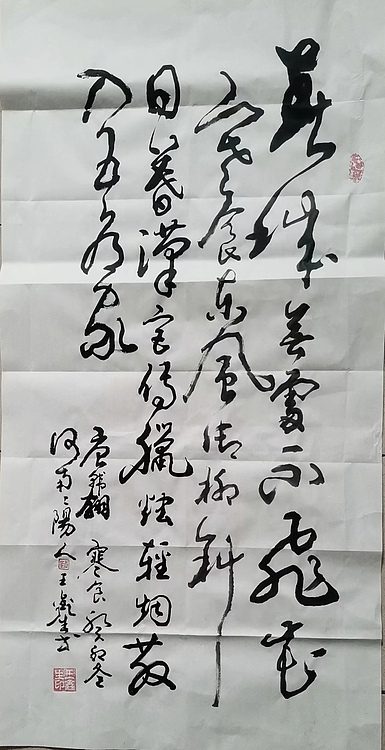 春城無處不飛花
寒食东風御柳斜
日暮漢宮傳臘燭輕烟散
入五侯家
唐韓翃 寒食 癸卯冬
河南南陽人王生书